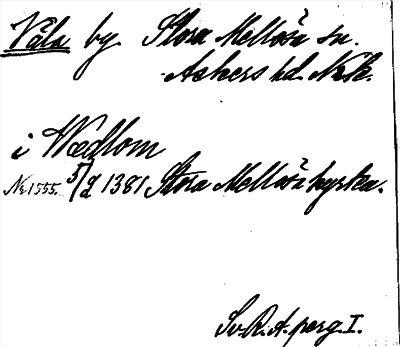 Väla by. Stora Mellösa sn.
Askers hd. Nrk.
i Wædlom
Nr 1555. 5/2 1381 Stora Mellösa kyrka.
Sv.R.A. perg. I.